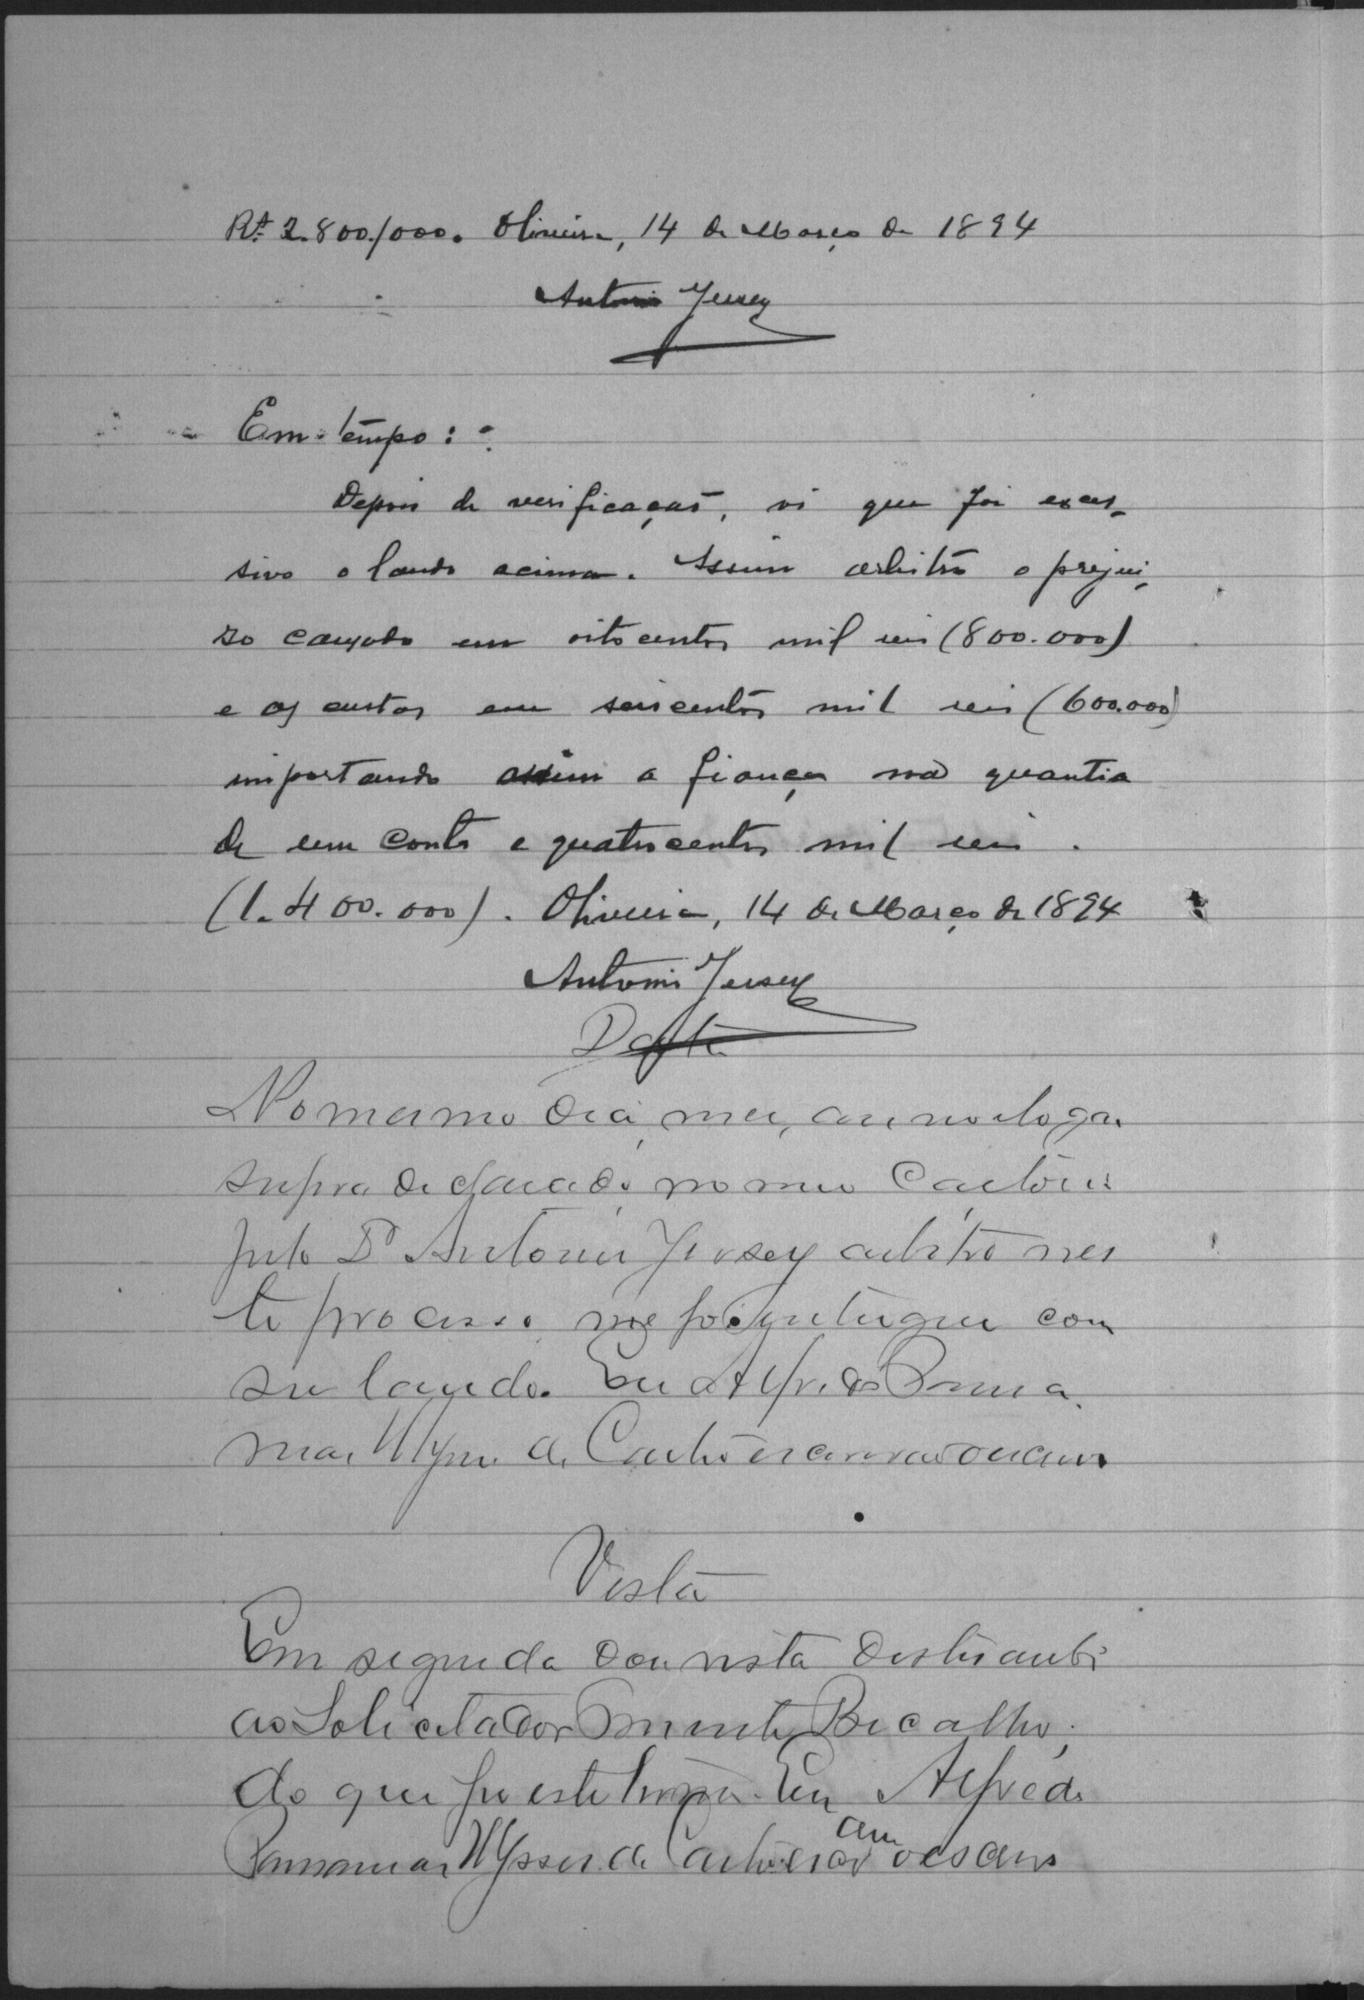 Rs. 2.800./000. Oliveira, 14 de Março de 1894
Antonio Jersey
Em tempo:
Depois de verificação, vi que foi exces-
sivo o laudo acima. Assim arbitro o prejui-
zo causado em oitocentos mil reis (800.000)
e as custas em seiscentos mil reis (600.000)
importando assim a fiança na quantia
de um conto e quatrocentos mil reis.
(1.400.000). Oliveira, 14 de Março de 1894
Antonio Jersey
Data
No mesmo dia, mez, anno e logar
supra declarado, no meu Cartorio
pelo Dr Antonio Jersey arbitro nes
te processo me foi entregue com
seu laudo. Eu Alfredo
de Castro escrivão o escrevi
Vista
Em segunda dou vista destes autos
ao Solicitador Bicalho;
do que fiz este termo. Eu Alfredo
Ulysses de Castro escrivão o escrevi